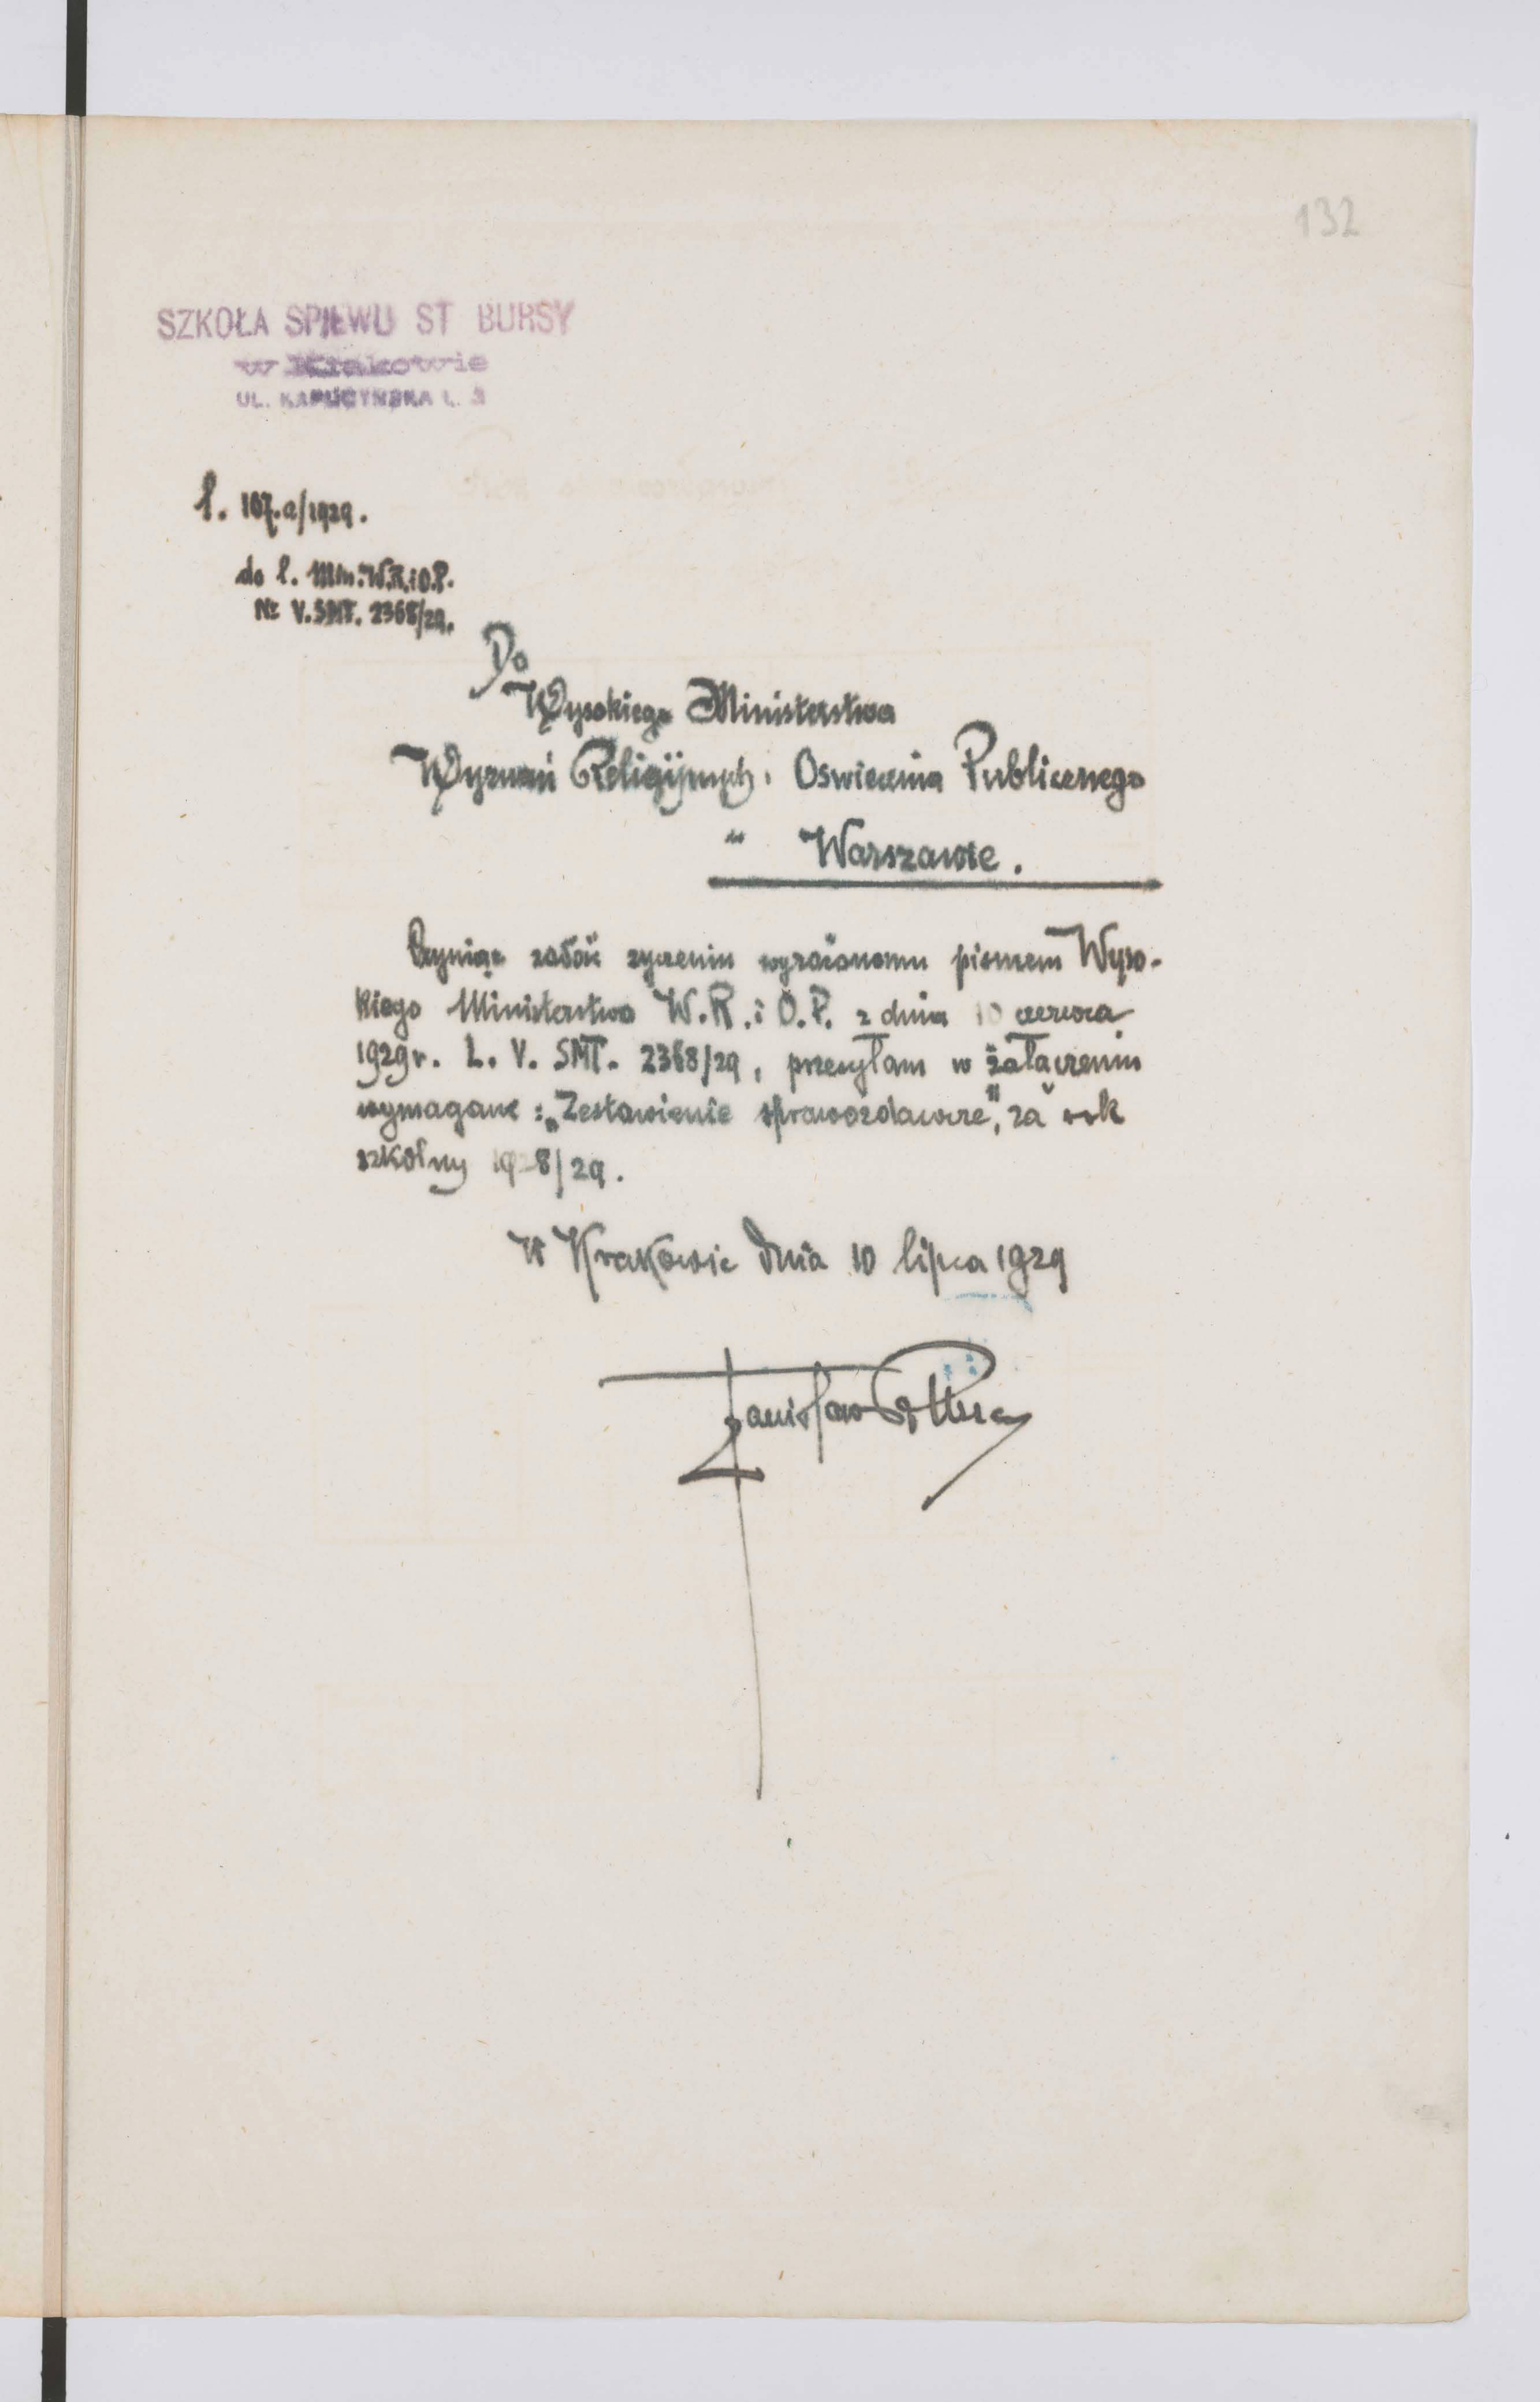 132
SZKOŁA ŚPIEWU ST BURSY
w Krakowie
UL. KAPUCYŃSKA L. 3
l. 107.a/1929.
do l. Min. W.R.i O.P.
Nr V.SMT. 2368/29.
Do
Wysokiego Ministerstwa
Wyznań Religijnych i Oświecenia Publicznego
w Warszawie.
Czyniąc zadość życzeniu wyrażonemu pismem Wyso-
kiego Ministerstwa W.R. i O.P. z dnia 10 czerwca
1929 r. L. V. SMT. 2368/29, przesyłam w załączeniu
wymagane: „Zestawienie sprawozdawcze", za rok
szkolny 1928/29.
W Krakowie dnia 10 lipca 1929
Stanisław Bursa